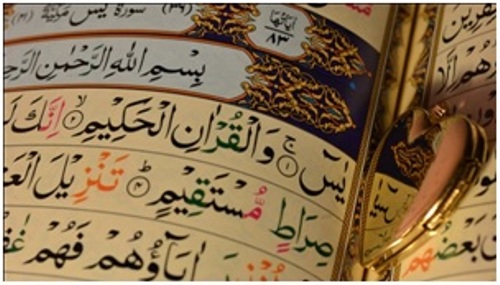 سُوْرَةُ يٰسٓ مَكِّيَّةٌ
اٰيَاتُهَا
٨٣
بِسْمِ اللّٰهِ الرَّحْمٰنِ الرَّحِ
يٰسٓ ۚ ۝١ وَالْقُرْاٰنِ الْحَكِيْمِ ۙ ۝ اِنَّكَ لَ
صِرَاطٍ مُّسْتَقِيْمٍ ؕ ۝٤ تَنْزِيْلَ الْعَ
اٰبَآؤُهُمْ فَهُمْ غٰفِ
بَعْضُهُمْ